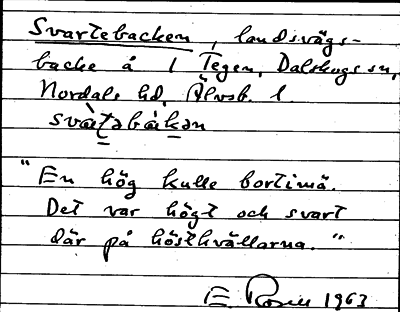 Svartebacken, landsvägs-
backe å 1 Tegen, Dalskogs sn,
Nordals hd, Älvsb. l.
svàtəbàkən
"En hög kulle bortimä.
Det var högt och svart
där på hösthvällarna."
E Rosen 1963